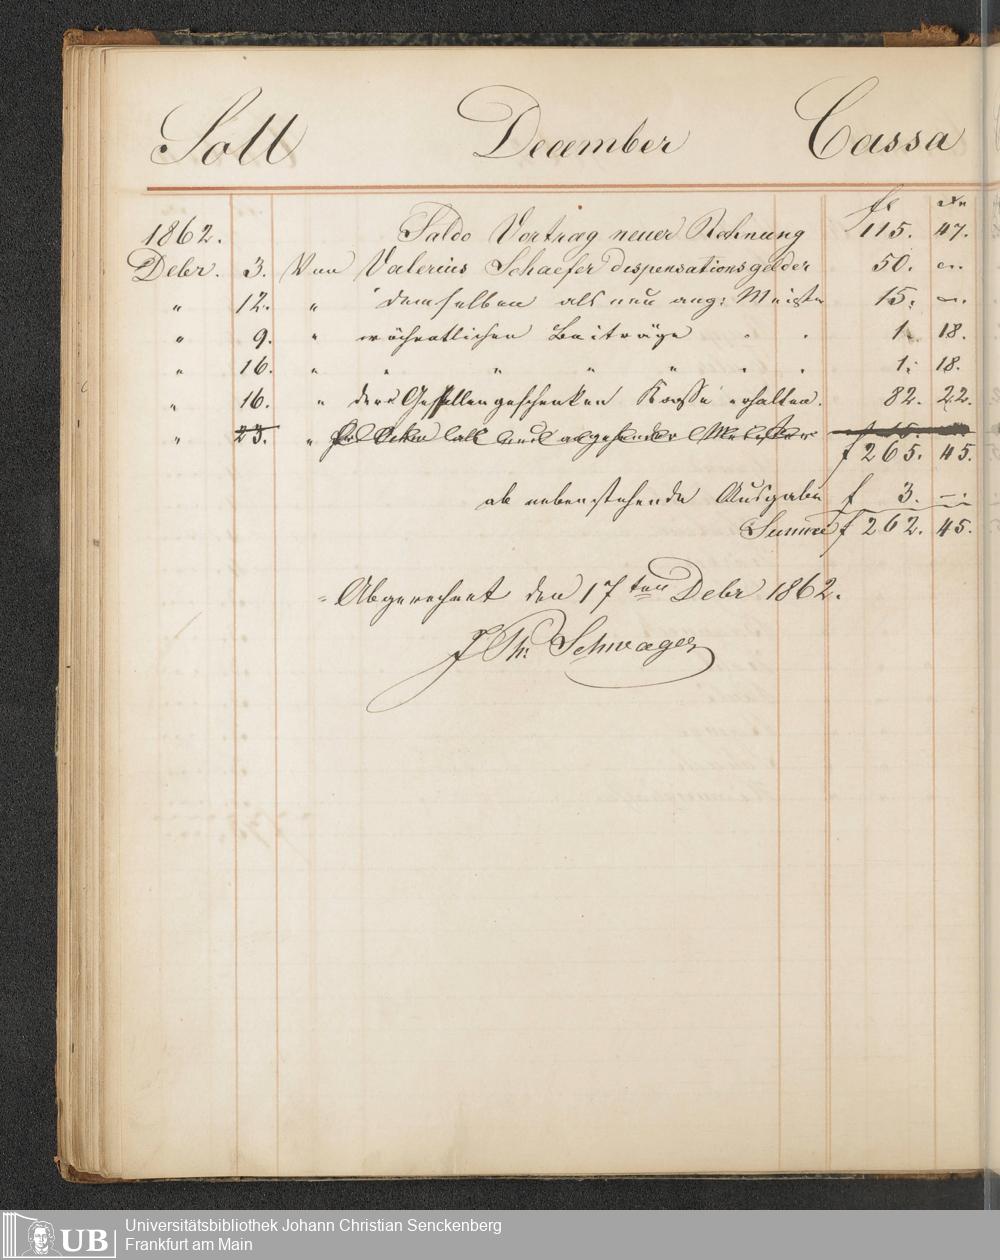 Soll December Cassa
fl xr
1862. Saldo Vortrag neuer Rechnung 115. 47.
Debr. 3. Von Valerius Schaefer dispensationsgelder 50. —.
" 12. " demselben als neu ang: Meister 15. —.
" 9. " wöchentlichen Beiträge . . 1. 18.
" 16. " " " " " . . 1. 18.
" 16. " der Gesellengeschenken Kasse erhalten. 82. 22.
" 23. " als neu Meister 15.
f 265. 45.
ab nebenstehende Ausgaben f 3. —.
Summe f 262. 45.
Abgerechnet den 17ten Debr 1862.
J Th: Schwager
UB Universitätsbibliothek Johann Christian Senckenberg
Frankfurt am Main